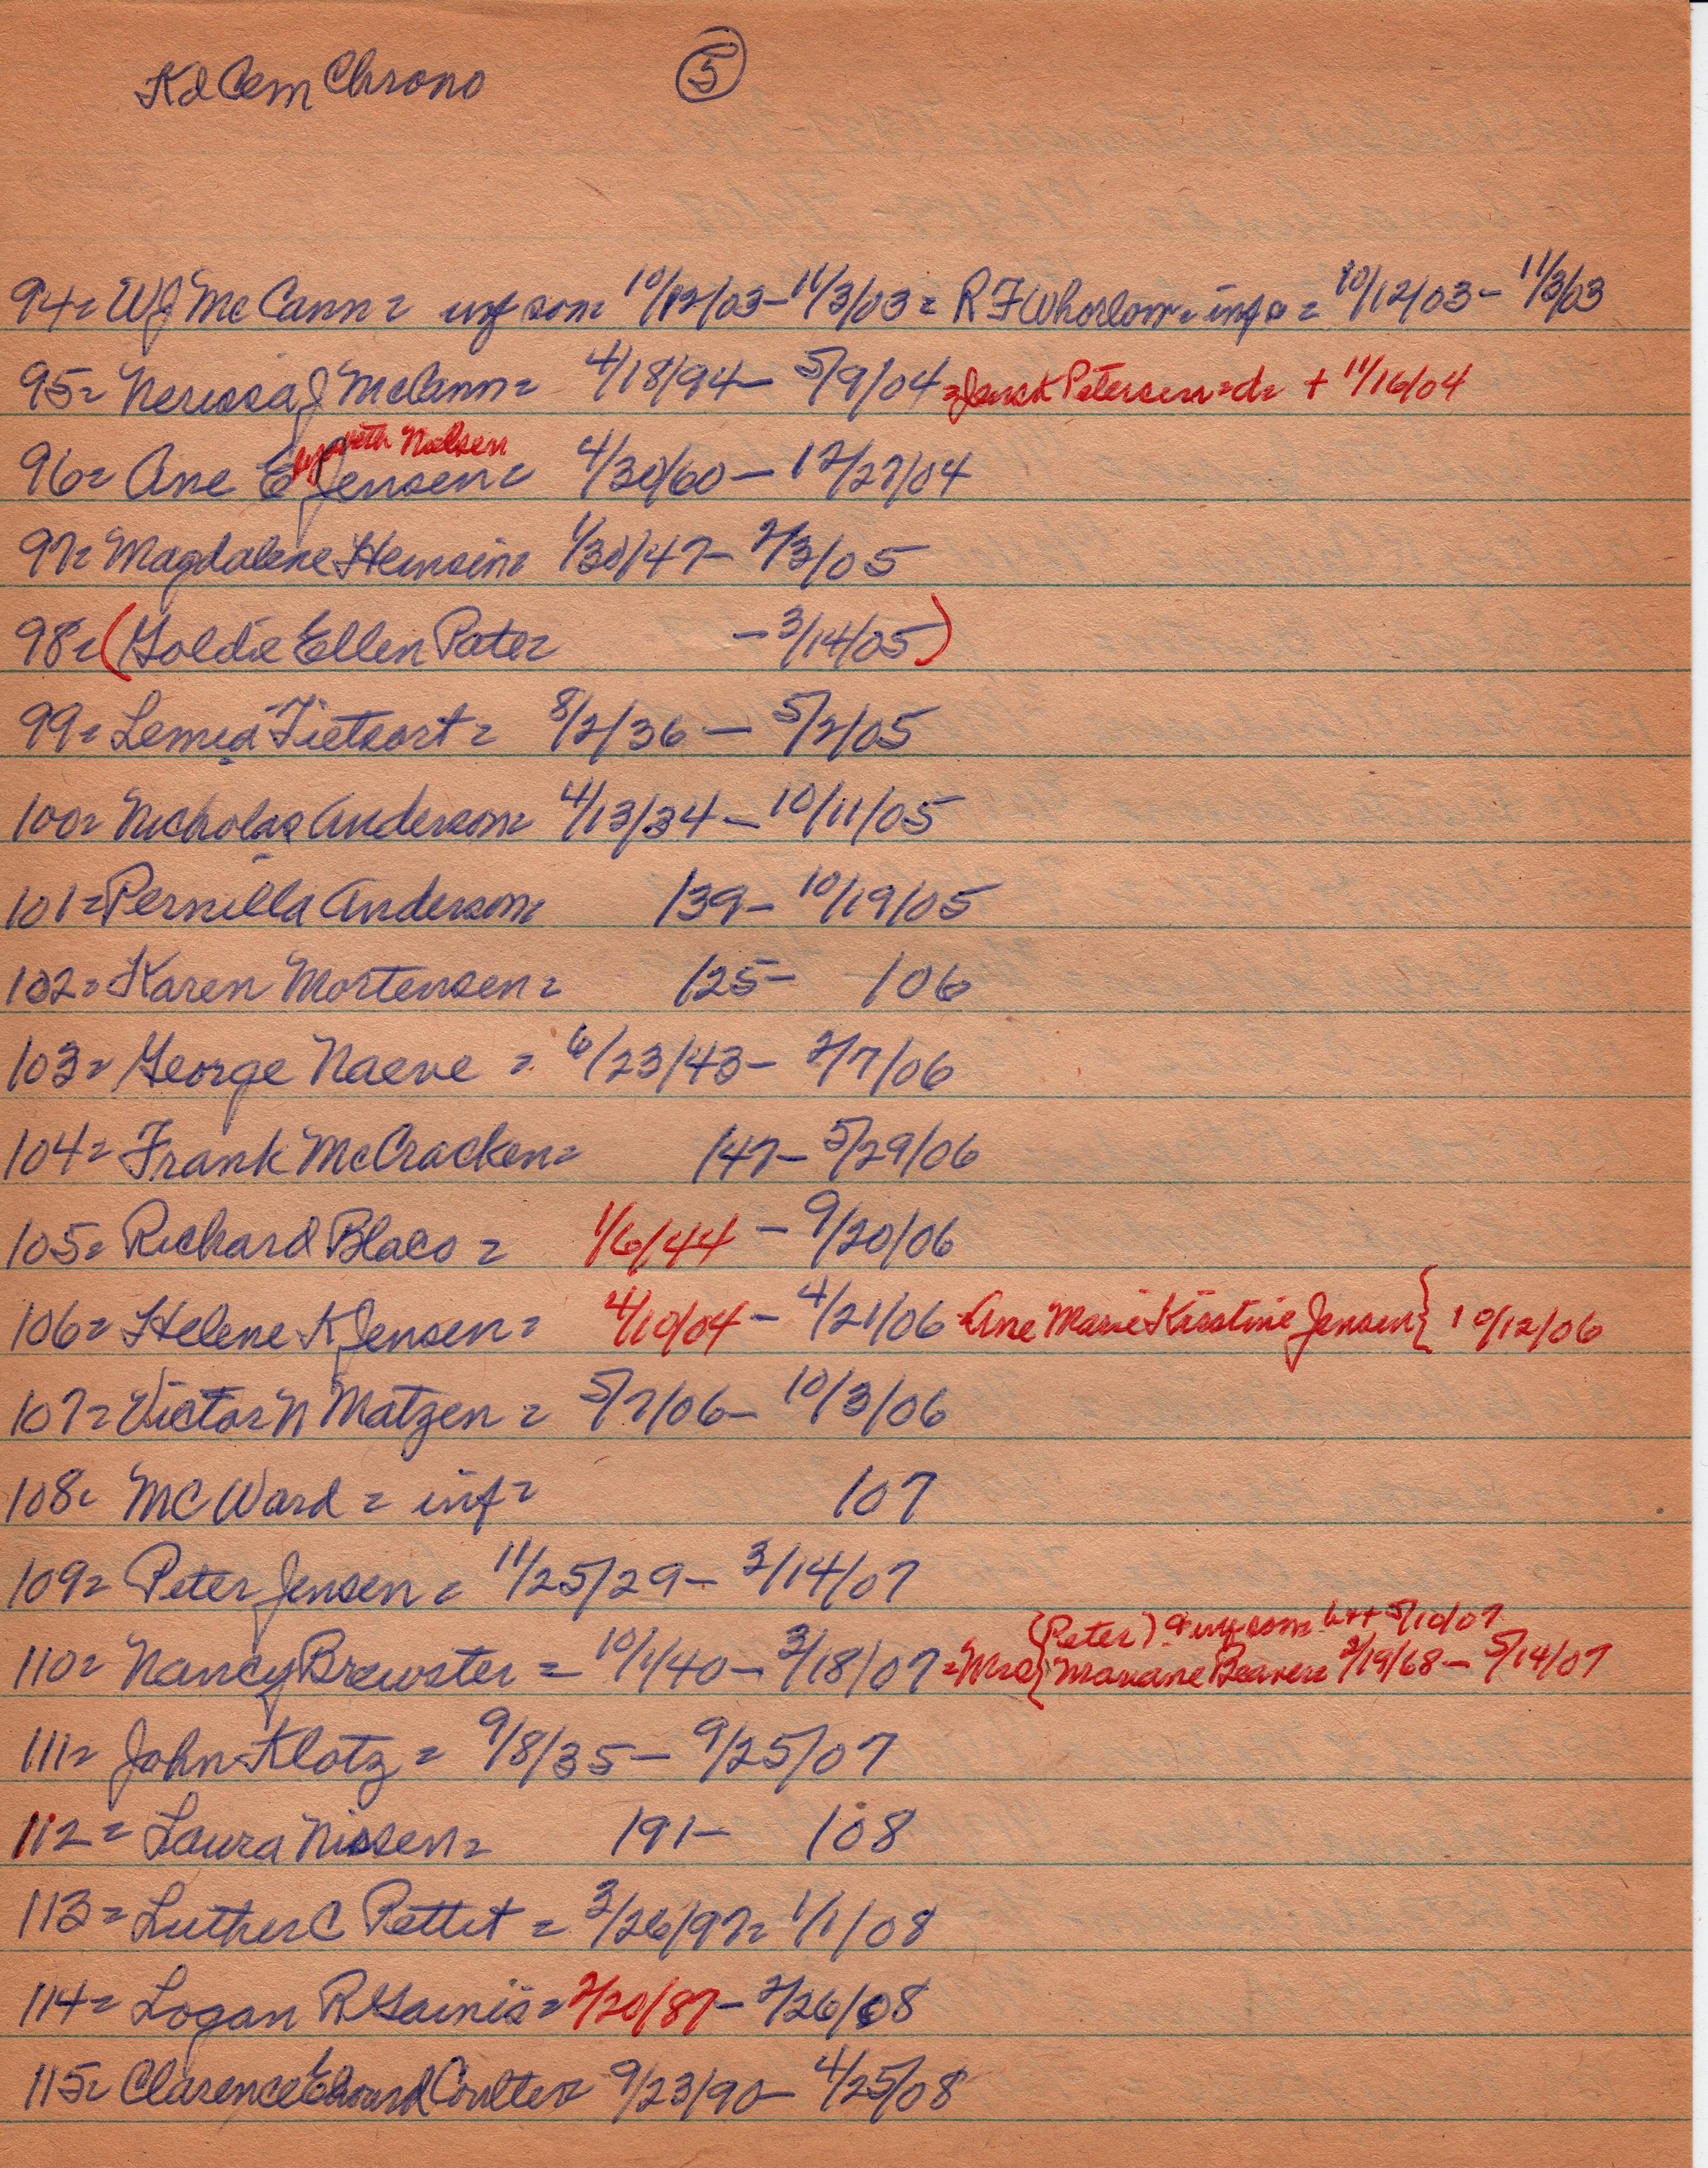 Kd Cem Chrono 5
94= WJ McCann= inf son= 10/12/03-11/3/03= R F Whorlow= inf s= 10/12/03- 11/3/03
95= Nerissa J McCann= 4/18/94- 5/9/04 =Jens K Petersen=d= + 11/16/04
Elizabeth Nielsen
96= Ane E Jensen= 4/30/60- 12/27/04
97= Magdalene Hensen= 1/30/47- 2/3/05
98= (Goldie Ellen Pate= -3/14/05)
99= Tietsort= 8/2/36- 5/2/05
100= Nicholas Anderson= 4/13/34- 10/11/05
101= Pernilla Anderson= /39- 10/19/05
102= Karen Mortensen= /25- /06
103= George Naeve = 6/23/43- 2/7/06
104= Frank McCracken= /47- 5/29/06
105= Richard Blaco = 1/6/44 - 9/20/06
106= Helene K Jensen= 4/10/04 - 4/21/06 -Ane Marie Kirstine Jensen} 10/12/06
107= Victor N Matzen = 5/7/06- 10/3/06
108= MC Ward = inf= /07
109= Peter Jensen = 11/25/29- 3/14/07
(Peter) & inf son= b++ 5/10/07
110= Nancy Brewster = 10/1/40- 3/18/07 =Mrs{ Mariane Beaver= 2/19/68- 5/14/07
111= John Klotz = 9/8/35- 9/25/07
112= Laura Nissen= /91- /08
113= Luther C Pettit = 3/26/97= 1/1/08
114= Logan R = 2/20/87- 2/26/08
115= Clarence Edward Coulter= 9/23/90- 4/25/08